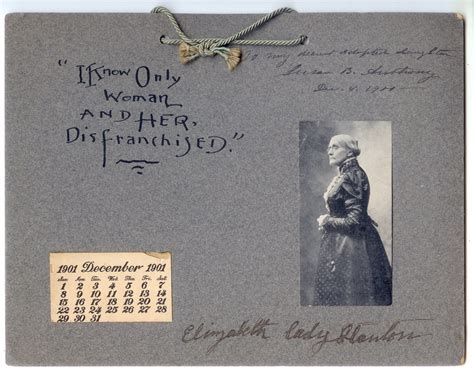 "I Know Only
Woman
AND HER,
Disfranchised."
to my dear adopted daughter
Susan B. Anthony
Dec.
1901 December 1901
Sun. Mon. Tue. Wed. Thu. Fri. Sat.
1 2 3 4 5 6 7
8 9 10 11 12 13 14
15 16 17 18 19 20 21
22 23 24 25 26 27 28
29 30 31
Elizabeth Cady Stanton